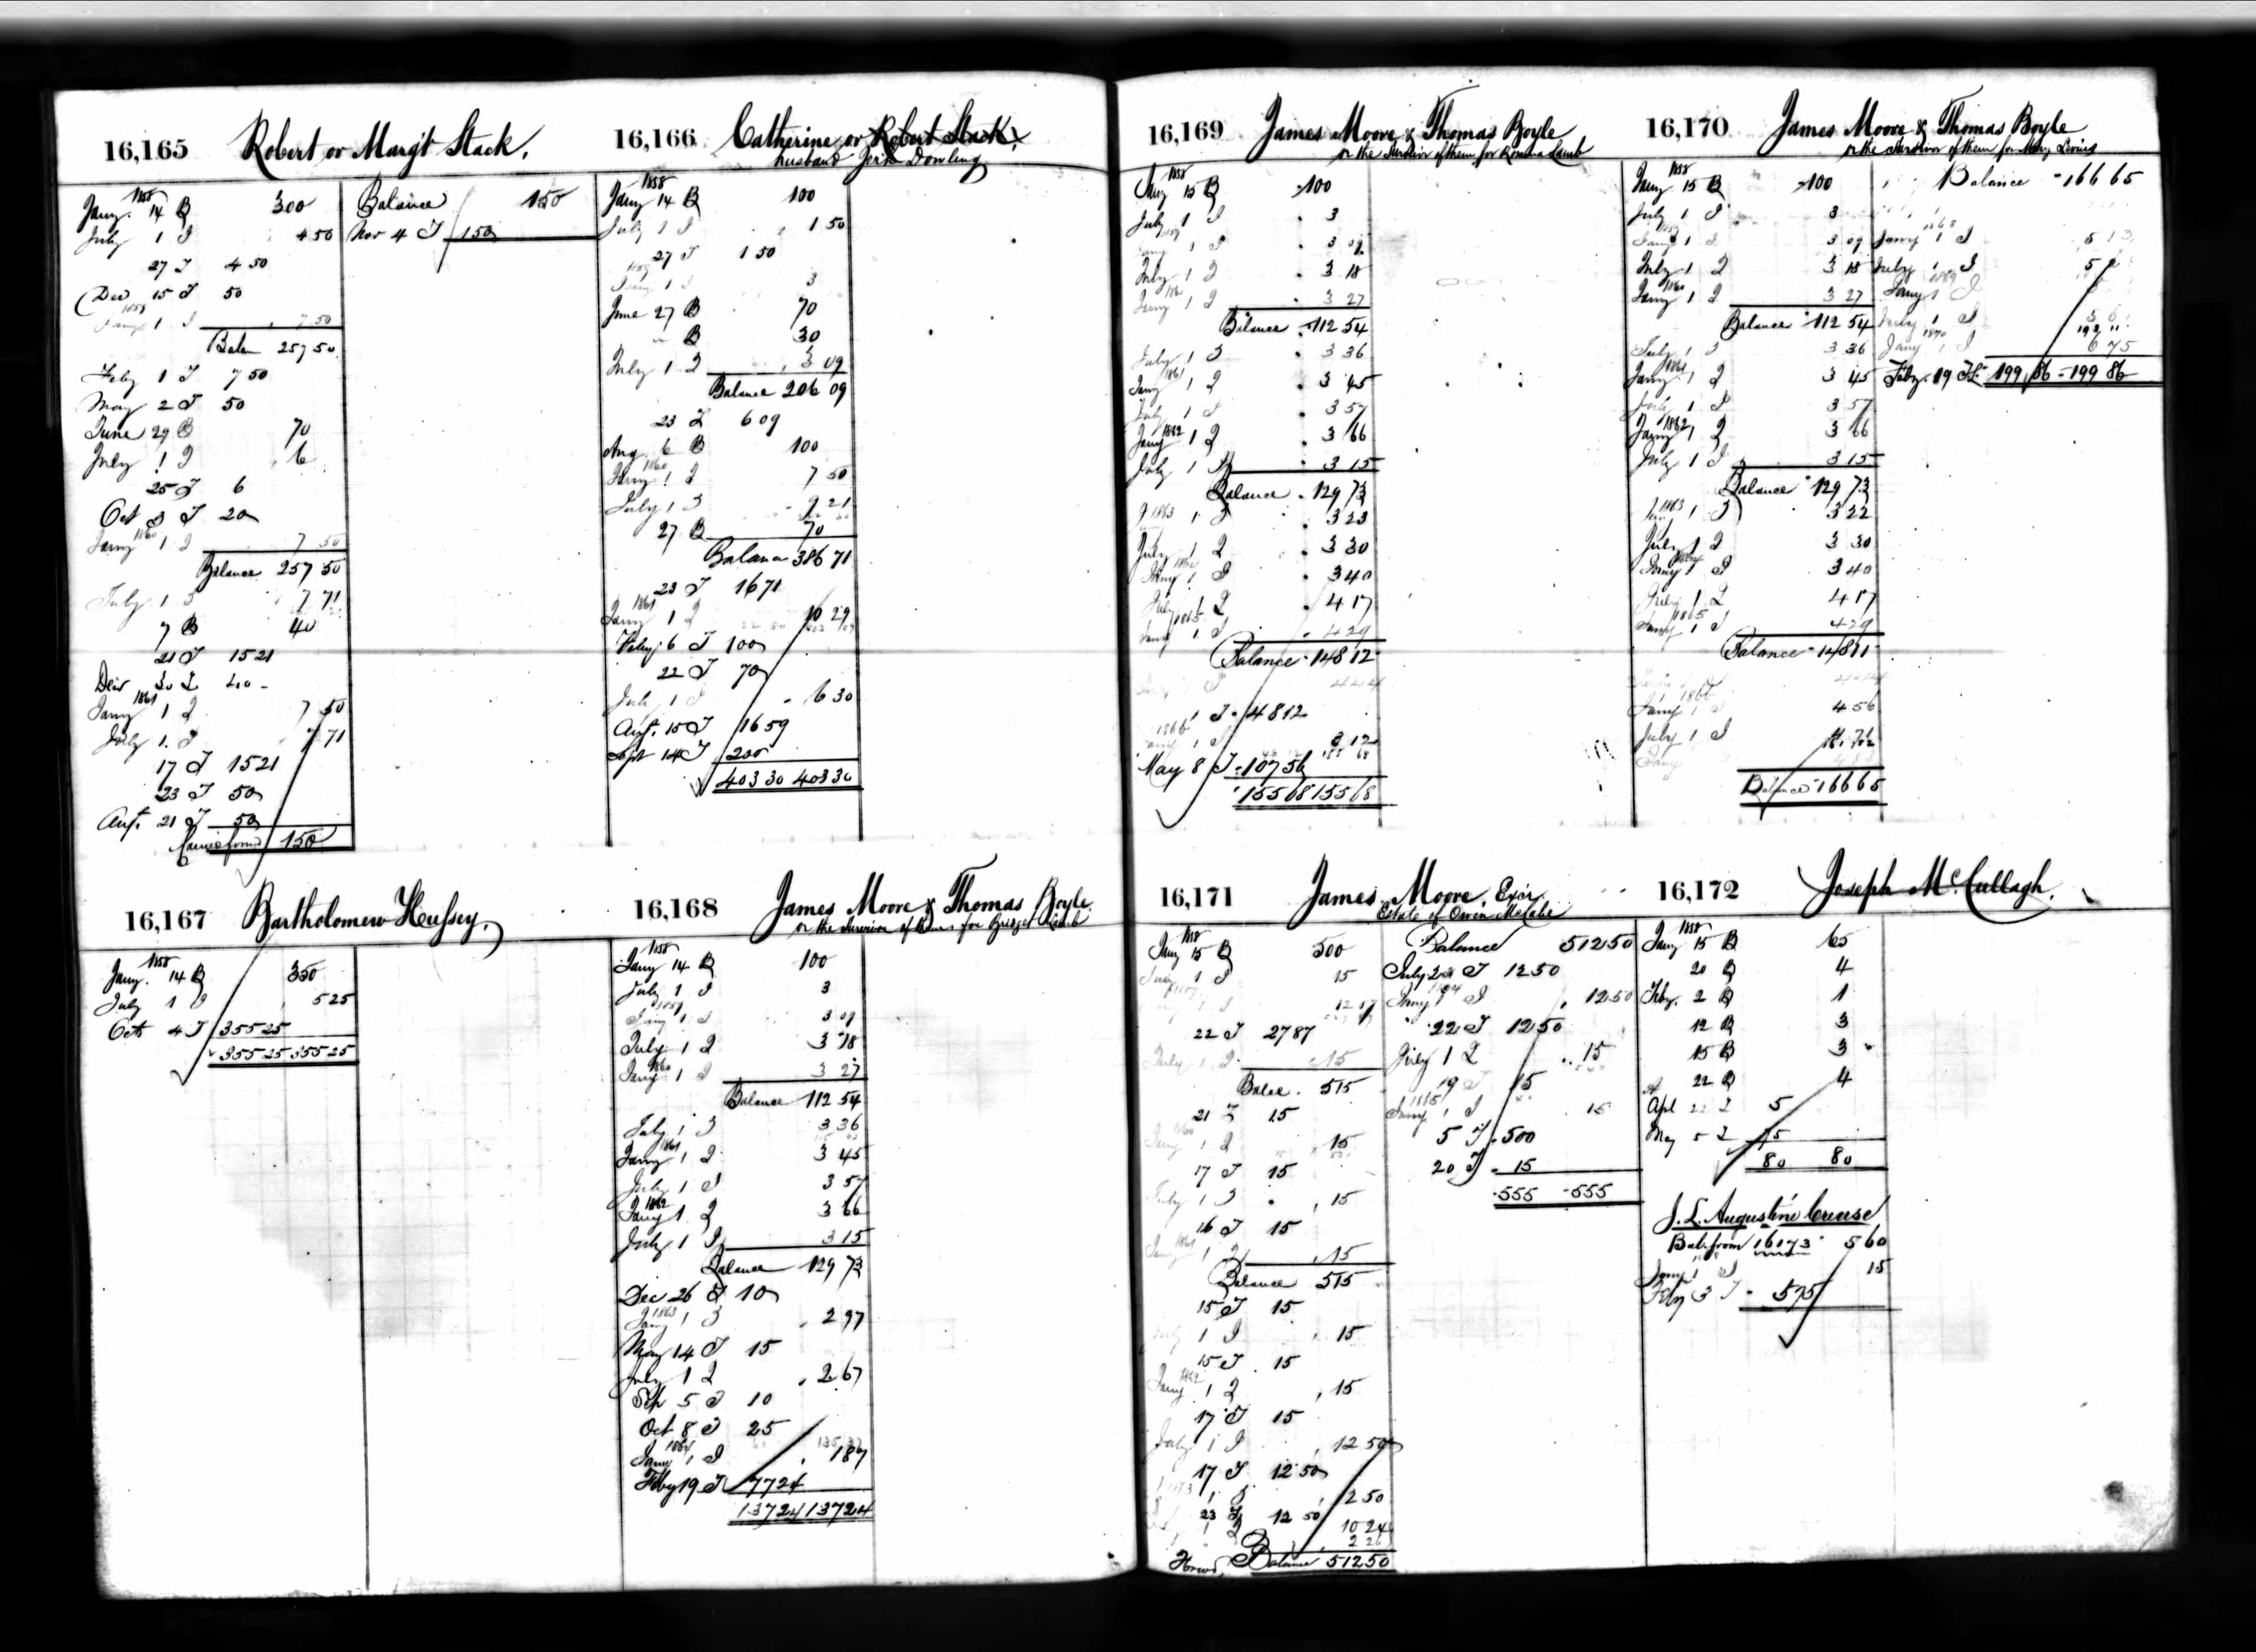 16,165 Robert or Margt Stack.
1858
Jany. 14 B 300
July 1 I 4 50
27 T 4 50
Dec 15 T 50
1859
Jany 1 I 7 50
Balan 257 50
Feby 1 T 7 50
May 2 T 50
June 29 B 70
July 1 I 6
25 T 6
Oct 3 T 20
Jany 1860 1 I 7 50
Balance 257 50
July 1 I 7 71
7 B 40
21 T 15 21
30 T 40
1861
Jany 1 I 7 50
July 1 I 7 71
17 T 15 21
23 T 50
Aug. 21 T 50
150
Balance 150
Nov 4 T 150
16,166 Catherine or Robert Stack.
husband Jerh Dowling
1858
Jany 14 B 100
July 1 I 1 50
27 T 1 50
1859
Jany 1 I 3
June 27 B 70
B 30
July 1 I 3 09
Balance 206 09
23 T 6 09
Aug. 6 B 100
1860
Jany 1 I 7 50
July 1 I 9 21
27 B 70
Balance 386 71
23 T 16 71
1861
Jany 1 I 10 29
Feby. 6 T 100
22 T 70
July 1 I 6 30
Aug. 15 T 16 59
Sept 14 T 200
403 30 403 30
16,167 Bartholomew Hussey.
1858
Jany. 14 B 350
July 1 I 5 25
Oct 4 T 355 25
355 25 355 25
16,168 James Moore & Thomas Boyle
or the survivor of them for Bridget Lamb
1858
Jany 14 B 100
July 1 I 3
1859
Jany 1 I 3 09
July 1 I 3 18
1860
Jany 1 I 3 27
Balance 112 54
July 1 I 3 36
1861
Jany 1 I 3 45
July 1 I 3 57
1862
Jany 1 I 3 66
July 1 I 3 15
Balance 129 73
Dec 26 T 10
1863
Jany 1 I 2 97
May 14 T 15
July 1 I 2 67
Sep 5 T 10
Oct 8 T 25
1864
Jany 1 I 1 87
Feby 19 T 77 24
137 24 137 24
16,169 James Moore & Thomas Boyle
or the survivor of them for Lamb
1858
Jany 15 B 100
July 1 I 3
1859
Jany 1 I 3 09
July 1 I 3 18
1860
Jany 1 I 3 27
Balance 112 54
July 1 I 3 36
1861
Jany 1 I 3 45
July 1 I 3 57
1862
Jany 1 I 3 66
July 1 I 3 15
Balance 129 73
1863
1 I 3 23
July 1 I 3 30
Jany 1 I 3 40
July 1 I 4 17
1865
Jany 1 I 4 29
Balance 148 12
1 T 48 12
1866
Jany 1 I 3 12
May 8 T 107 56
155 68 155 68
16,170 James Moore & Thomas Boyle
or the survivor of them for Mary
1858
Jany 15 B 100
July 1 I 3
1859
Jany 1 I 3 09
July 1 I 3 18
1860
Jany 1 I 3 27
Balance 112 54
July 1 I 3 36
1861
Jany 1 I 3 45
July 1 I 3 57
1862
Jany 1 I 3 66
July 1 I 3 15
Balance 129 73
1863
Jany 1 I 3 22
July 1 I 3 30
Jany 1 I 3 40
July 1 I 4 17
1865
Jany 1 I 4 29
Balance 148 11
1866
Jany 1 I 4 56
July 1 I
Jany
Balance 166 65
Balance 166 65
1868
Jany 1 I 5 13
July 1 I 5
1869
Jany 1 I
July 1 I
1870
Jany 1 I 6 75
Feby. 19 T 199 86 199 86
16,171 James Moore, Exir
Estate of Owen McCabe
1858
Jany 15 B 500
July 1 I 15
22 T 27 87
July 1 I 15
Balce. 515
21 T 15
1860
Jany 1 I 15
17 T 15
July 1 I 15
16 T 15
1861
Jany 1 I 15
Balance 515
15 T 15
July 1 I 15
15 T 15
1862
Jany 1 I 15
17 T 15
July 1 I 12 50
17 T 12 50
1 I 2 50
23 T 12 50
10 24
2 26
Forwd. Balance 512 50
Balance 512 50
July 20 T 12 50
Jany 1 I 12 50
22 T 12 50
July 1 I 15
19 T 15
1865
Jany 1 I 15
5 T 500
20 T 15
555 555
16,172 Joseph McCullagh.
1858
Jany 15 B 65
20 B 4
Feby. 2 B 1
12 B 3
15 B 3
22 B 4
Apl 22 T 5
May 5 T 75
80 80
J. L. Augustine Creuse
Bal. from 16173 560
Jany 1 I 15
Feby 3 T 575